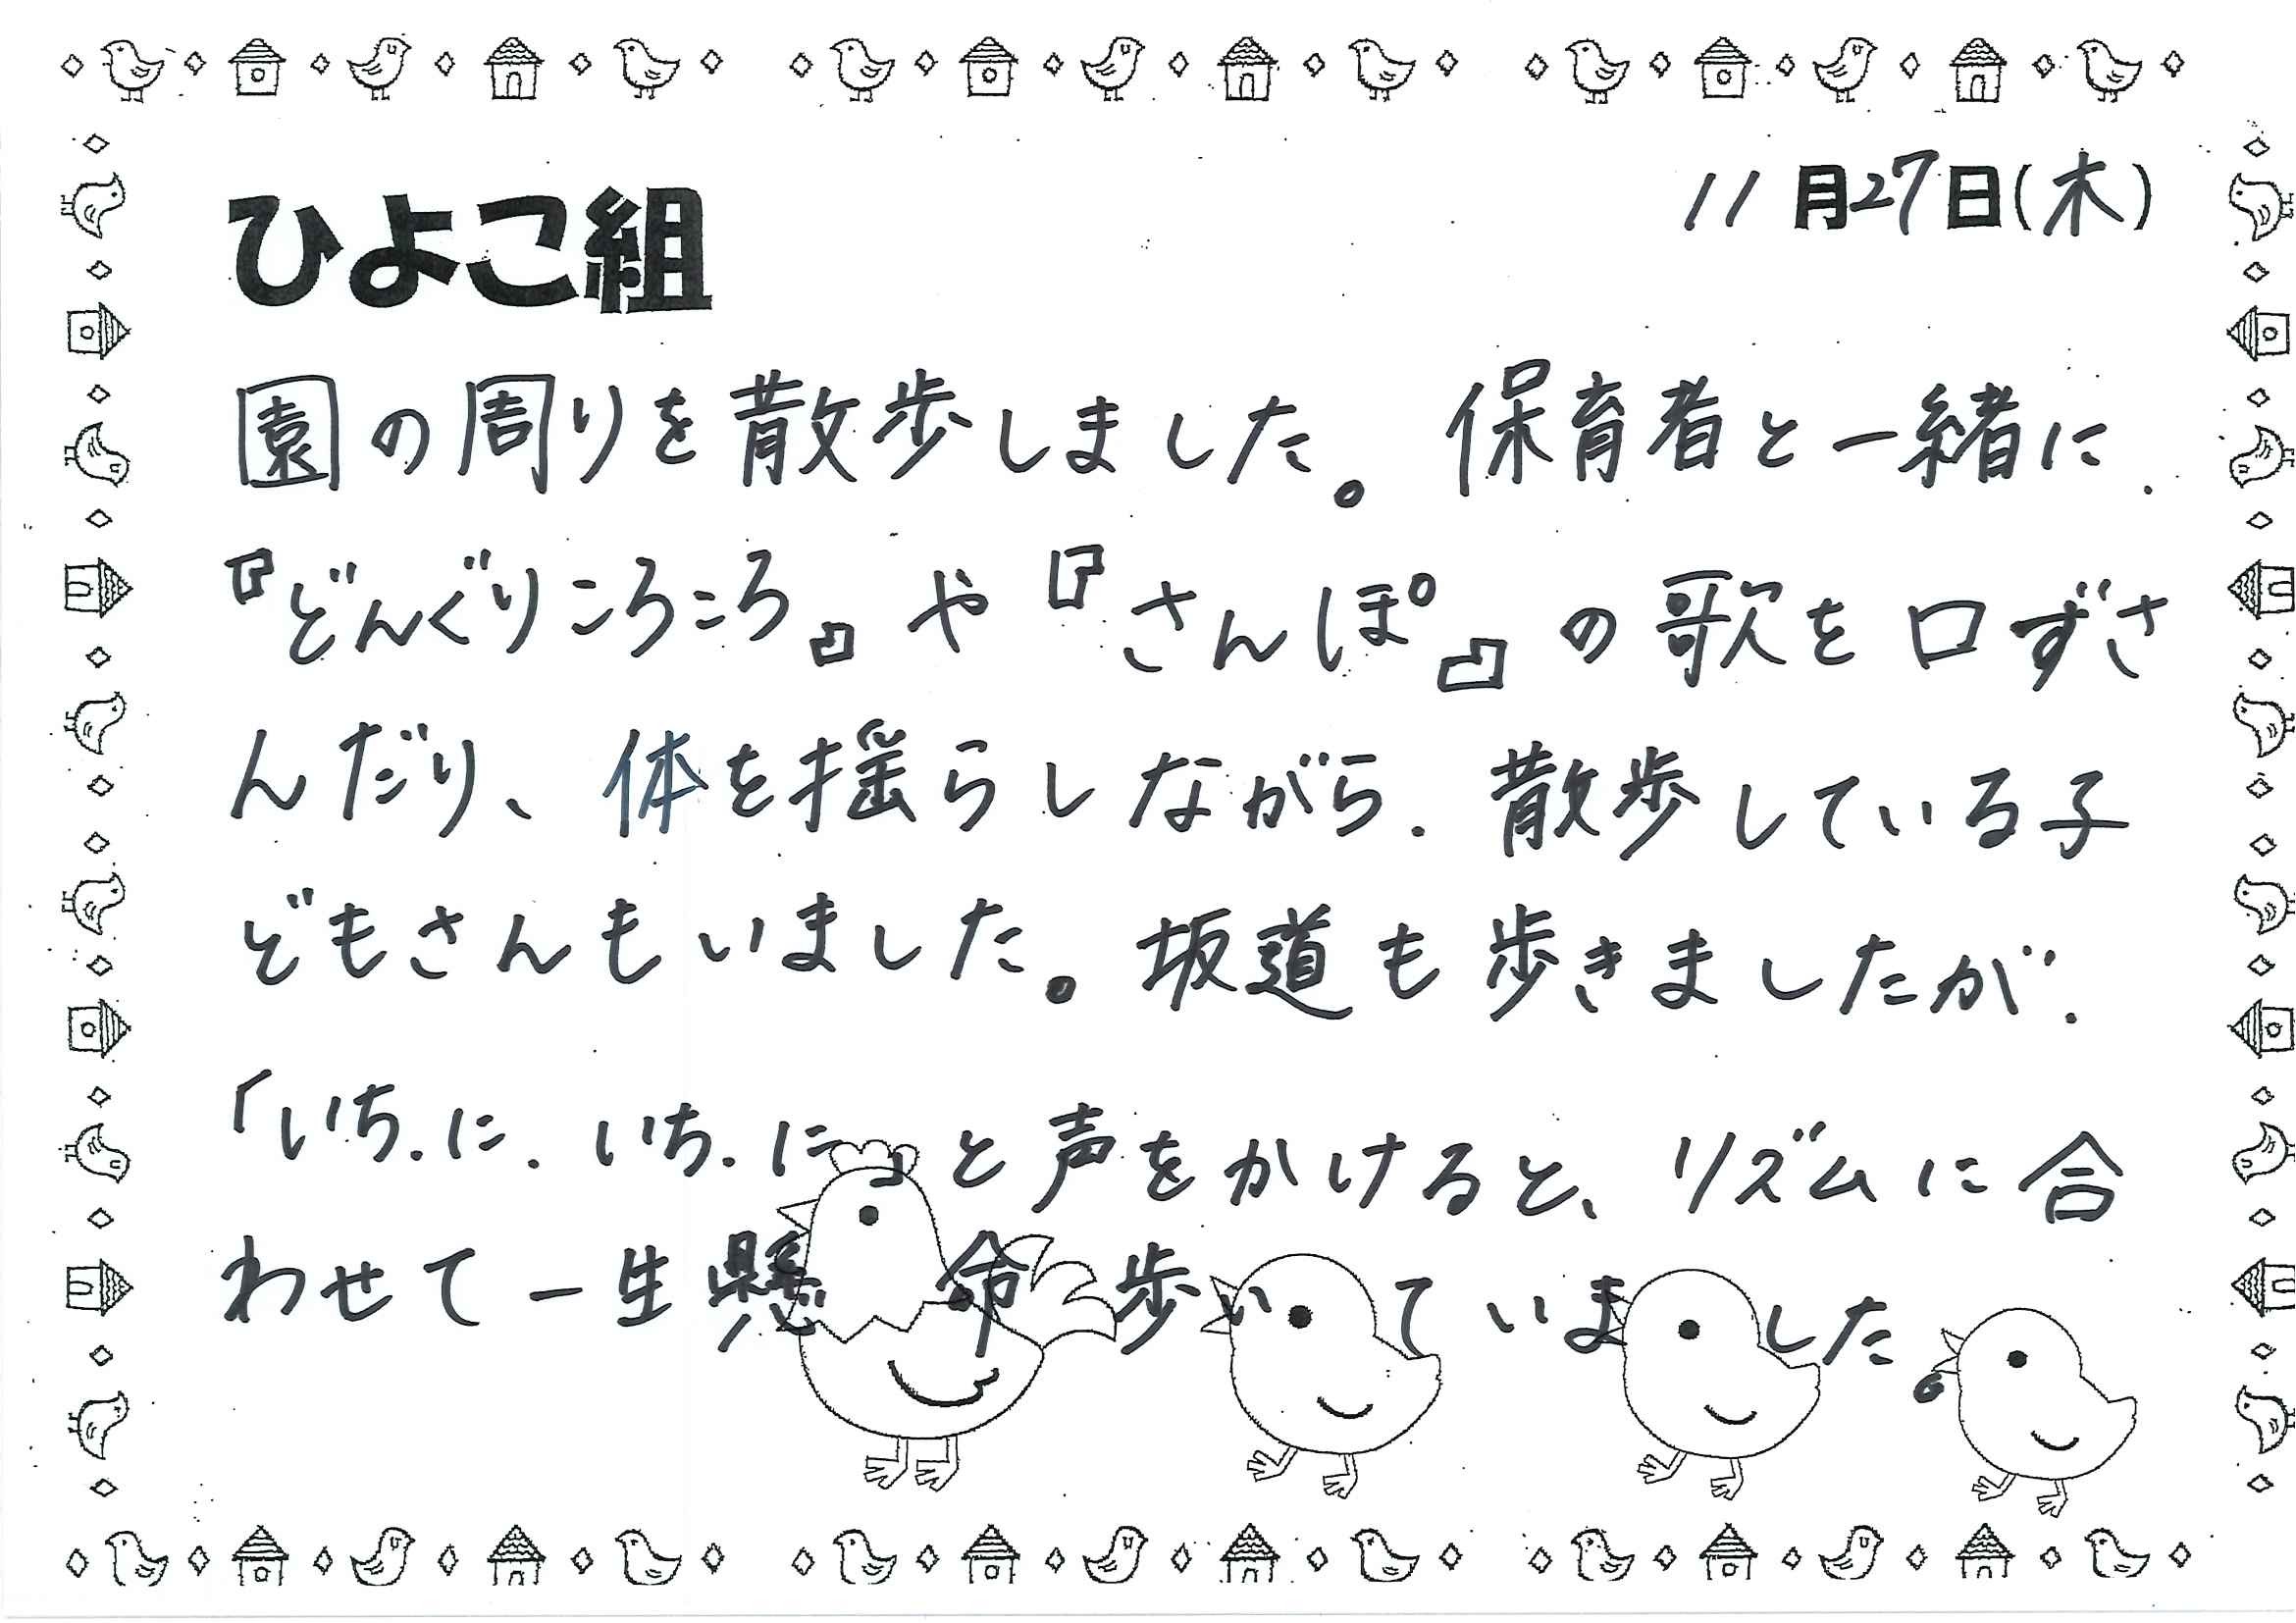 11月27日(木)
ひよこ組
園の周りを散歩しました。保育者と一緒に、
『どんぐりころころ』や『さんぽ』の歌を口ずさ
んだり、体を揺らしながら、散歩している子
どもさんもいました。坂道も歩きましたが、
「いち、に、いち、に」と声をかけると、リズムに合
わせて一生懸命歩いていました。